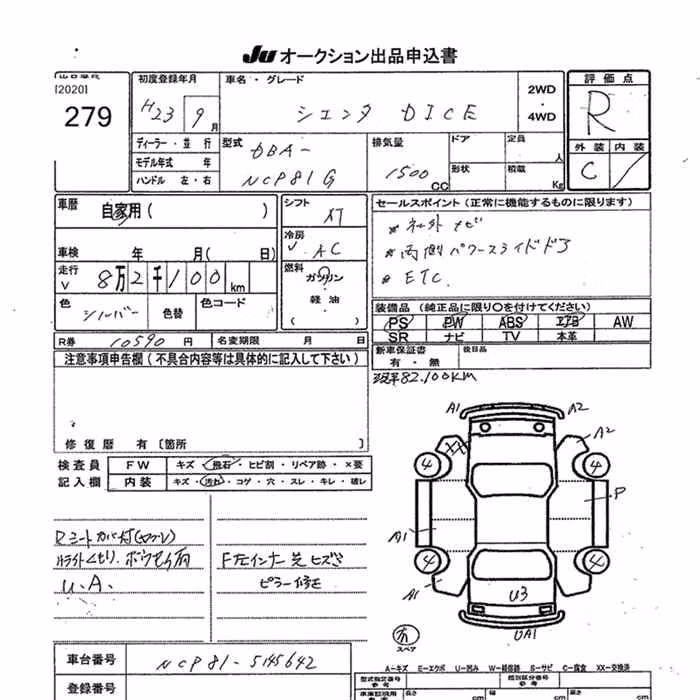 JU オークション出品申込書
[2020]
279
初度登録年月
H23 9 月
車名・グレード
シエンタ DICE
2WD
・
4WD
評価点
R
外装 内装
C
ディーラー・並行
モデル年式 年
ハンドル 左・右
型式
DBA-
NCP81G
排気量
1500 CC
ドア
形状
定員 人
積載 Kg
車歴
自家用( )
車検 年 月( 日)
走行
8万2千100km
色
シルバー
色替
色コード
シフト
AT
冷房
AC
燃料
ガソリン
・
軽油
・
( )
セールスポイント(正常に機能するものに限ります)
※ 社外ナビ
※ 両側パワースライドドア
※ ETC
装備品(純正品に限り〇を付けてください)
PS PW ABS エアB AW
SR ナビ TV 本革
R券 10590 円
名変期限 月 日
新車保証書
有・無
後日品
注意事項申告欄(不具合内容等は具体的に記入して下さい)
現車82.100KM
修復歴 有〔箇所 〕
検査員
記入欄
FW キズ・飛石・ヒビ割・リペア跡・×要
内装 キズ・汚れ・コゲ・穴・スレ・キレ・破レ
A1 A2
A2
4 4
P
A1
4 4
A1
U3
UA1
有
スペア
U.A.
ピラー修正
A-キズ E-エクボ U-凹み W-補修跡 S-サビ C-腐食 XX-交換済
車台番号 NCP81-5145642
登録番号
型式指定番号
類別区分番号
長さ cm 幅 cm 高さ cm